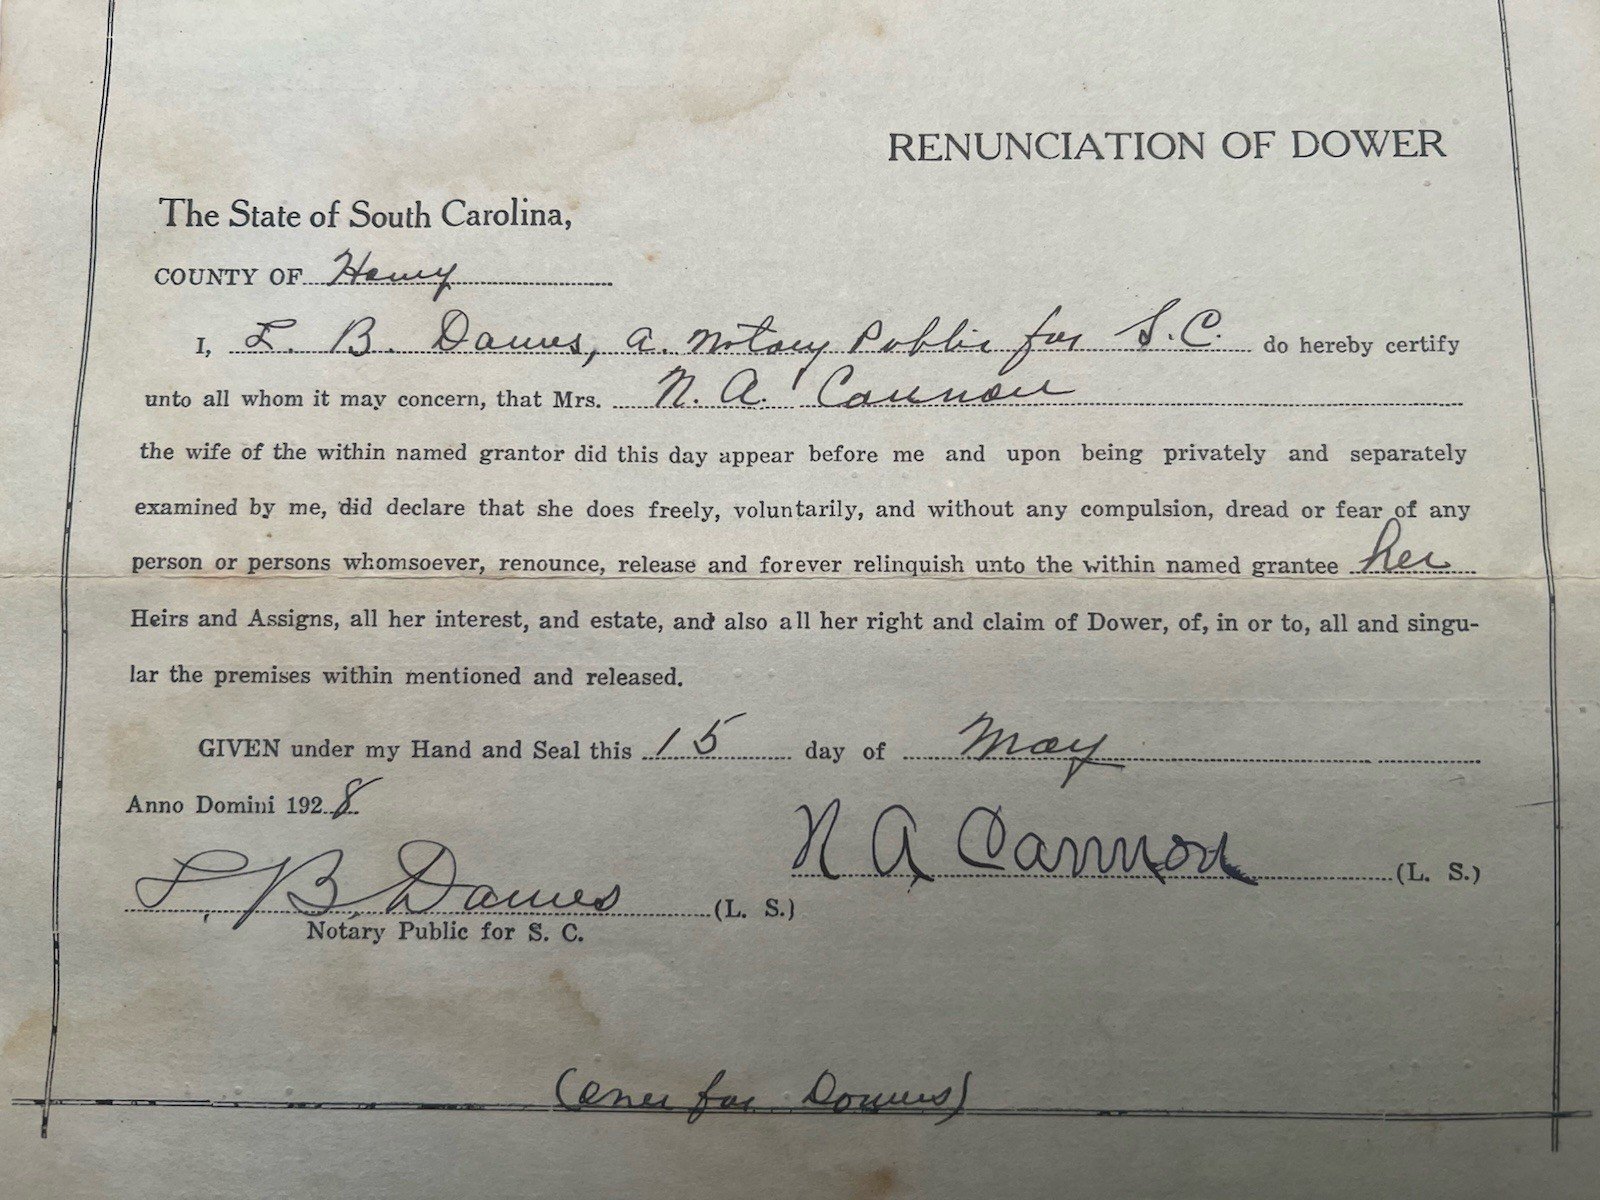 RENUNCIATION OF DOWER
The State of South Carolina,
COUNTY OF Horry
I, L. B. Dawes, a. Notary Public for S.C. do hereby certify
unto all whom it may concern, that Mrs. N. A. Cannon
the wife of the within named grantor did this day appear before me and upon being privately and separately
examined by me, did declare that she does freely, voluntarily, and without any compulsion, dread or fear of any
person or persons whomsoever, renounce, release and forever relinquish unto the within named grantee her
Heirs and Assigns, all her interest, and estate, and also all her right and claim of Dower, of, in or to, all and singu-
lar the premises within mentioned and released.
GIVEN under my Hand and Seal this 15 day of May
Anno Domini 1928
N A Cannon (L. S.)
L. B. Dawes (L. S.)
Notary Public for S. C.
(over for Dowers)